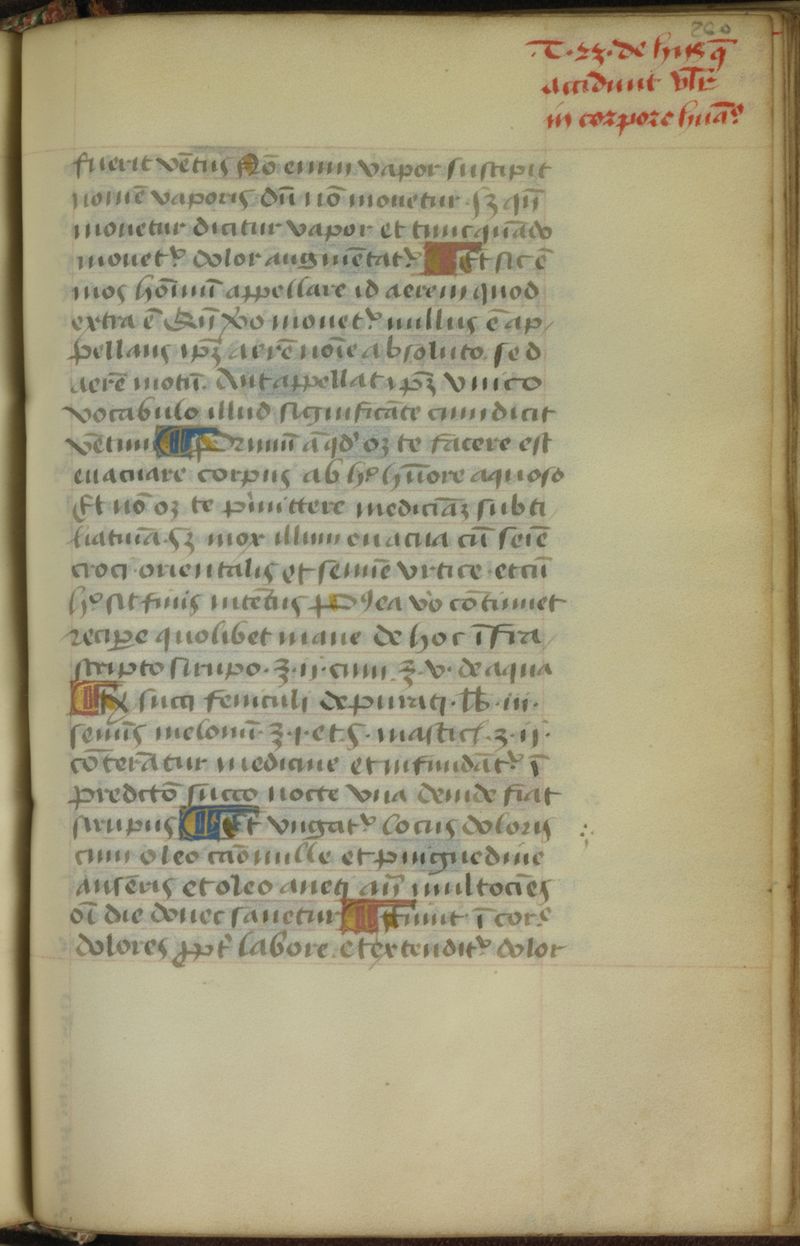 260
T. 22. de hiis q̄
accidunt vlr̄
in corpore huā⁹
fuerit vētus Nō enim vapor suscipit
nomē vaporis dū nō mouetur sꝫ qn̄
mouetur dicitur vapor et tunc quādo
mouetᷣ dolor augmētatᷣ Et sic ē
mos hoīnū appellare id aerem quod
extra ē Qn̄ v̊o mouetᷣ nullus ē ap/
pellans ipꝫ aerē noīe absoluto sed
aerē motū. Aut appellat ipꝫ vnico
vocabulo illud significāte cum dicit
vētum Primū aūt qd' oꝫ te facere est
euacuare corpus ab h° hūore aquoso
Et nō oꝫ te p̄mittere medicinā subti
liatiuā sꝫ mox illum euacua cū seīe
croci orientalis et semīe vrtice et cū
h° sit finis intētus Postea vo cōtinuet
recipe quolibet mane de hoc īfra/
scripto sirupo. ʒ. ij. cum ʒ. v. de aqua
Rx succi feniculi depurati. lb. iii.
semīs melonū ʒ. i. et s̄. mastic. ʒ. ij.
cōterātur medicine et infundātᷣ ī
predcto succo nocte vna deinde fiat
sirupus Et vngatᷣ locus doloris
cum oleo camomille et pinguedine
anseris et oleo aneti multociēs
oī die donec sanetur Fiunt ī corᵉ
dolores ꝓpt' labore et extenditᷣ dolor